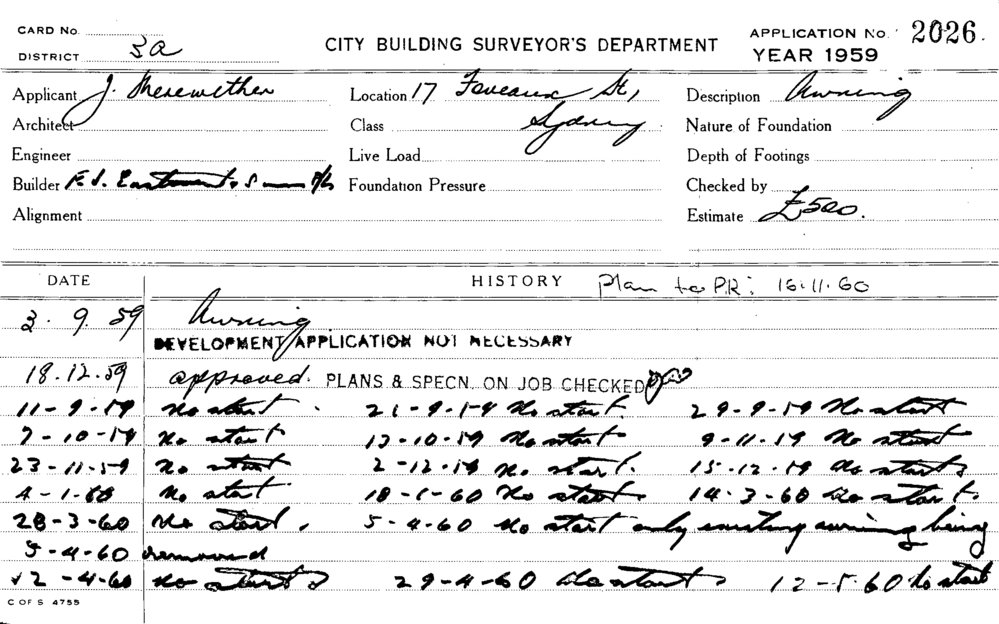 CARD No.
DISTRICT 3a
CITY BUILDING SURVEYOR'S DEPARTMENT
APPLICATION No. 2026.
YEAR 1959
Applicant J. Merewether
Location 17 Foveaux St,
Description Awning
Architect
Class Sydney
Nature of Foundation
Engineer
Live Load
Depth of Footings
Builder F.J. Eastment & Sons P/L
Foundation Pressure
Checked by
Alignment
Estimate £500.
DATE HISTORY Plan to P.R: 16.11.60
3. 9. 59 Awning
DEVELOPMENT APPLICATION NOT NECESSARY
18.12.59 approved. PLANS & SPECN. ON JOB CHECKED
11-9-59 No start. 21-9-59 No start. 29-9-59 No start
7-10-59 No start 12-10-59 No start 9-11-59 No start
23-11-59 No start 2-12-59 No start. 15-12-59 No start
4-1-60 No start. 18-1-60 No start 14-3-60 No start.
28-3-60 No start. 5-4-60 No start only existing awning being
5-4-60 removed
12-4-60 No start 29-4-60 No start 12-5-60 No start
C OF S 4755